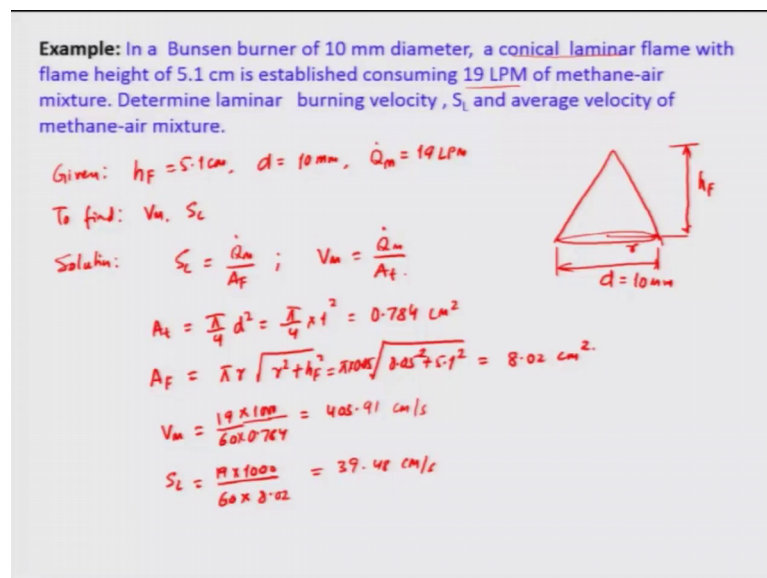 Example: In a Bunsen burner of 10 mm diameter, a conical laminar flame with
flame height of 5.1 cm is established consuming 19 LPM of methane-air
mixture. Determine laminar burning velocity , S_L and average velocity of
methane-air mixture.
Given: h_F = 5.1 cm, d = 10 mm, Q̇_m = 19 LPM
To find: V_m, S_L
Solution: S_L = Q̇_m / A_F ; V_m = Q̇_m / A_t.
h_F
r
d = 10 mm
A_t = π/4 d² = π/4 × 1² = 0.784 cm²
A_F = π r √(r² + h_F²) = π × 0.05 √(0.05² + 5.1²) = 8.02 cm².
V_m = 19 × 1000 / 60 × 0.784 = 403.91 cm/s
S_L = 19 × 1000 / 60 × 8.02 = 39.48 cm/s